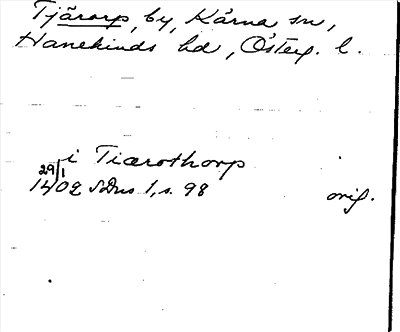 Tjärorp, by, Kärna sn,
Hanekinds hd, Österg. l.
i Tiærothorp
29/1
1402 SDns 1, s. 98 orig.